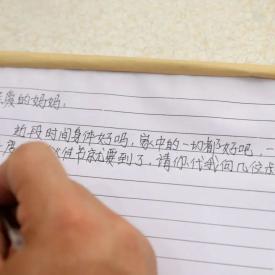 爱的妈妈,
近段时间身体好吗,家中的一切都好吧,一
佳节就要到了,请你代我向几位